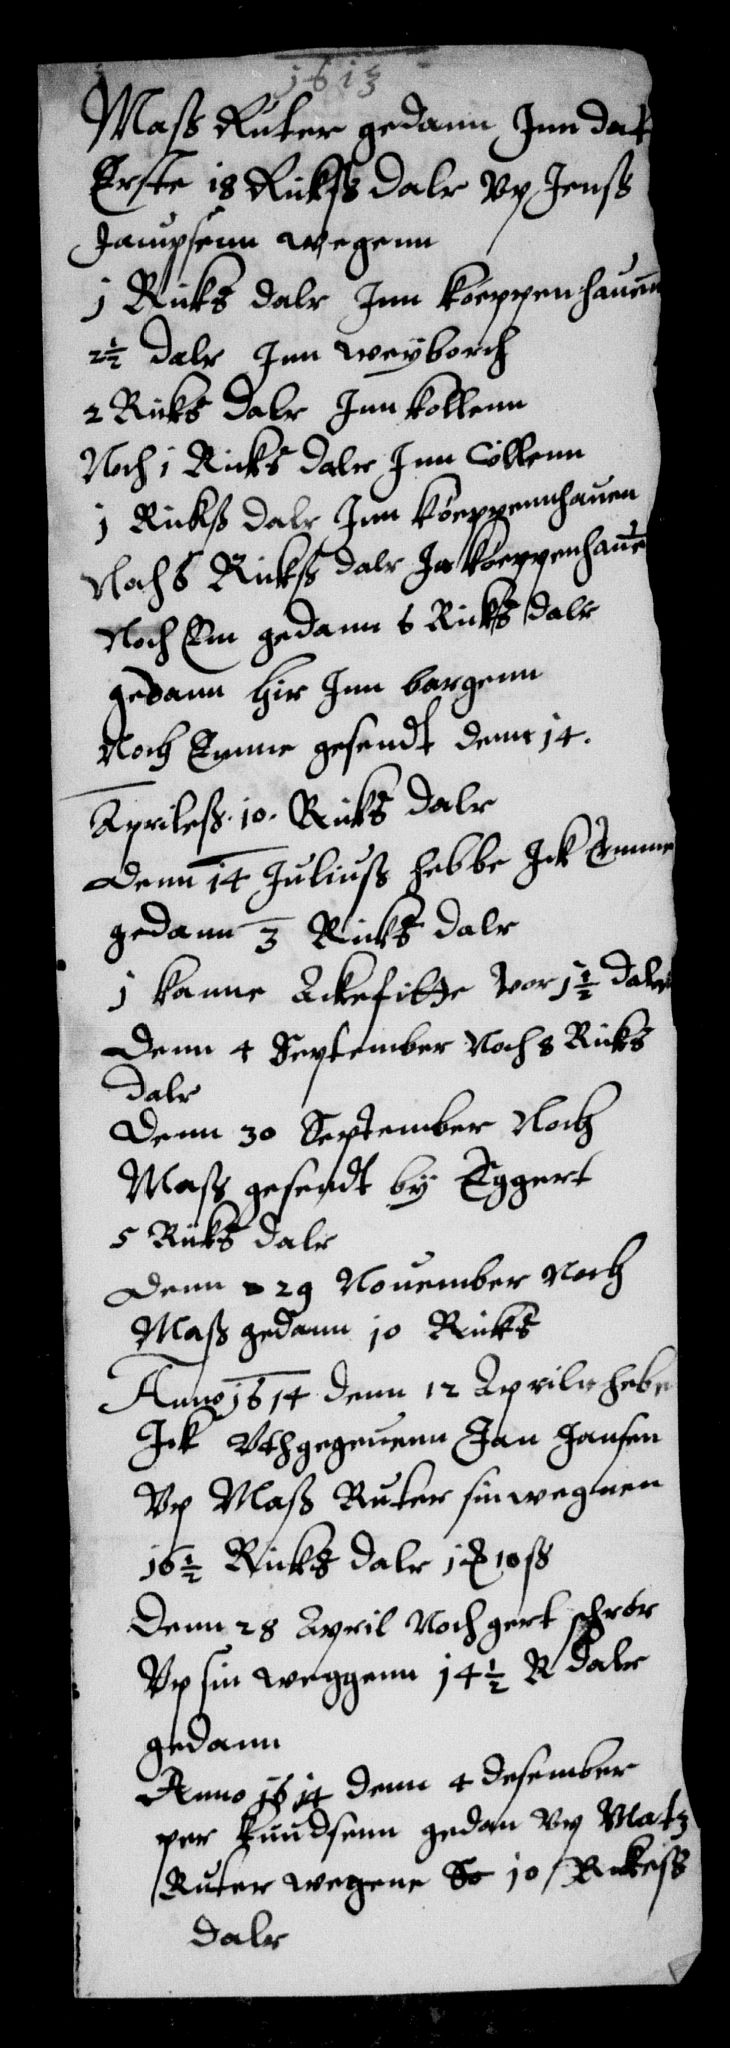 1613
Mass Ruter gedann Inn dat
Erste 18 Rickss dalr Vp Jenss
Jampsenn wegenn
1 Ricks dalr Inn koeppenhauen
2½ dalr Inn weyborch
2 Ricks dalr Inn kollenn
Noch 1 Ricks dalr Inn Cöllenn
1 Rickss dalr Inn koeppennhauen
Noch 6 Rickss dalr In koeppenhauen
Noch Em gedann 6 Ricks dalr
gedann hir Inn bargenn
Noch Emme gesendt denn 14.
Apriless. 10. Ricks dalr
Denn 14 Juliuss hebbe Ick Emme
gedann 3 Ricks dalr
1 kanne Ackefitte vor 1½ daler
Denn 4 September Noch 8 Ricks
dalr
Denn 30 September Noch
Mass gesendt by Eggert
5 Ricks dalr
Denn 29 Nouember Noch
Mass gedann 10 Ricks
Anno 1614 denn 12 Aprile hebe
Ick Vthgegeuenn Jan Jansen
Vp Mass Ruter sin wegnen
16½ Ricks dalr 1 10 ss
Denn 28 April Noch gert schrör
Vp sin weggenn 14½ R dalr
gedann
Anno 1614 denn 4 desember
per knudsenn gedan Vp Matz
Ruter wegene 10 Rickess
dalr